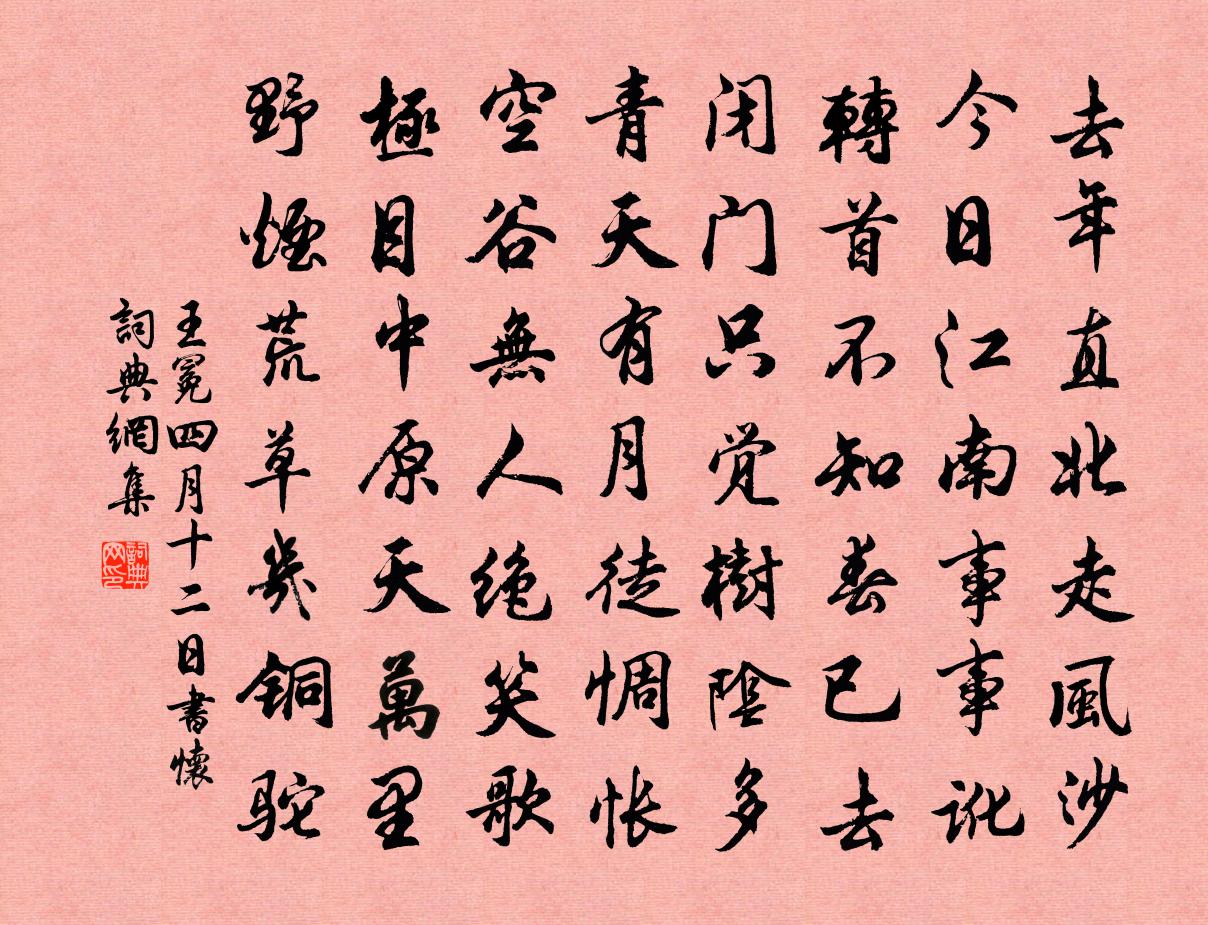 去年直北走風沙
今日江南事事訛
轉首不知春已去
闭门只觉樹陰多
青天有月徒惆怅
空谷無人绝笑歌
極目中原天萬里
野煙荒草幾銅駝
王冕四月十二日書懷
詞典網集
詞典网印